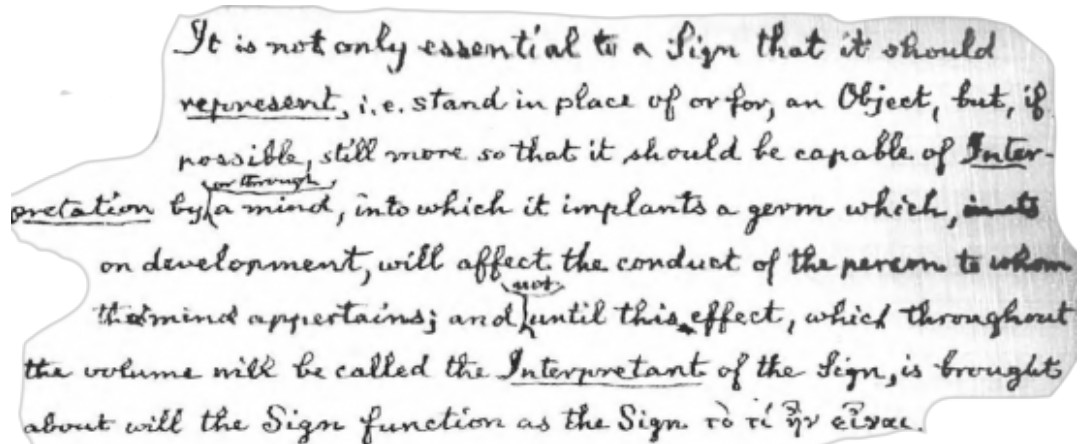 It is not only essential to a Sign that it should
represent, i.e. stand in place of or for, an Object, but, if
possible, still more so that it should be capable of Inter-
pretation by or through a mind, into which it implants a germ which,
on development, will affect the conduct of the person to whom
this mind appertains; and not until this effect, which throughout
the volume will be called the Interpretant of the Sign, is brought
about will the Sign function as the Sign τὸ τί ἦν εἶναι.